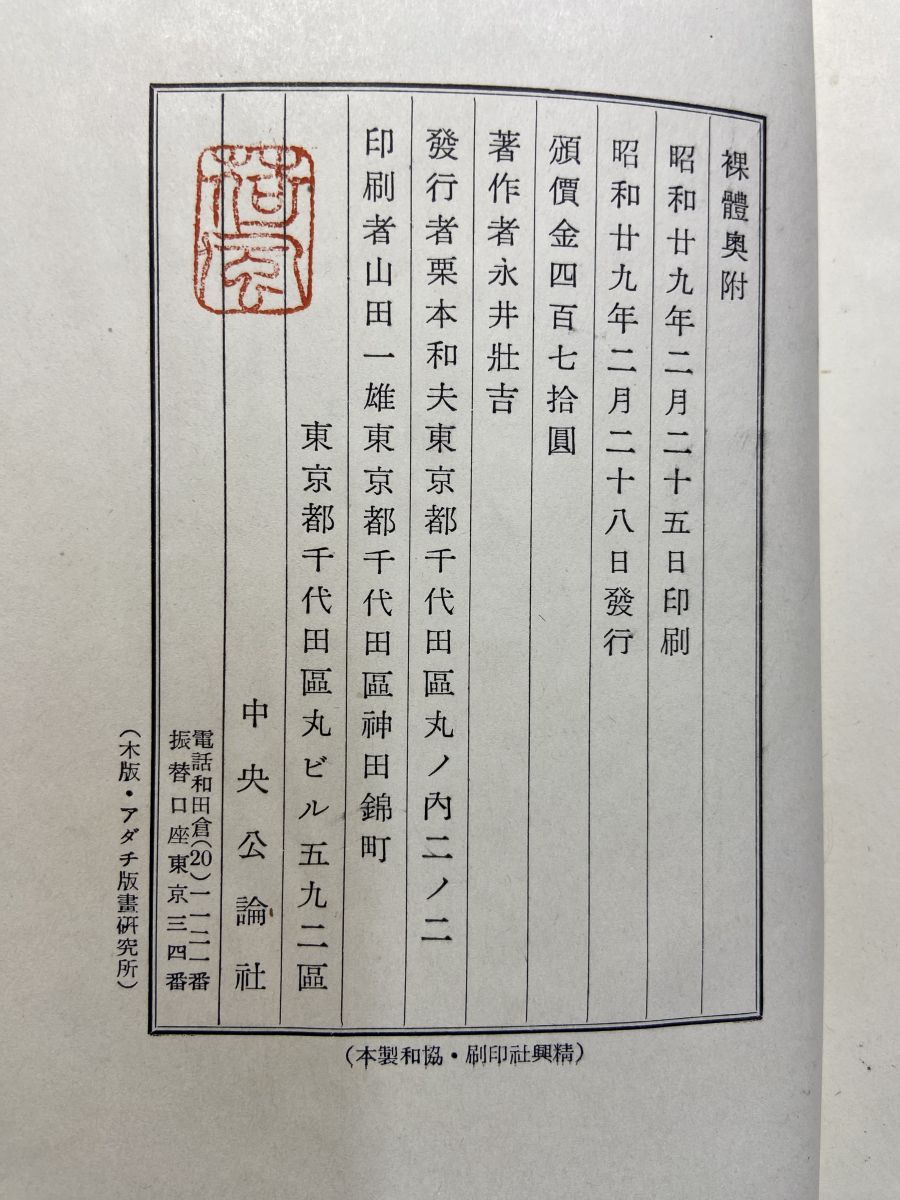 裸體奧附
昭和廿九年二月二十五日印刷
昭和廿九年二月二十八日發行
頒價金四百七拾圓
著作者永井壯吉
發行者栗本和夫東京都千代田區丸ノ內二ノ二
印刷者山田一雄東京都千代田區神田錦町
東京都千代田區丸ビル五九二區
中央公論社
電話和田倉(20)一一二一番
振替口座東京三四番
荷風
(木版・アダチ版畫硏究所)
(精興社印刷・協和製本)